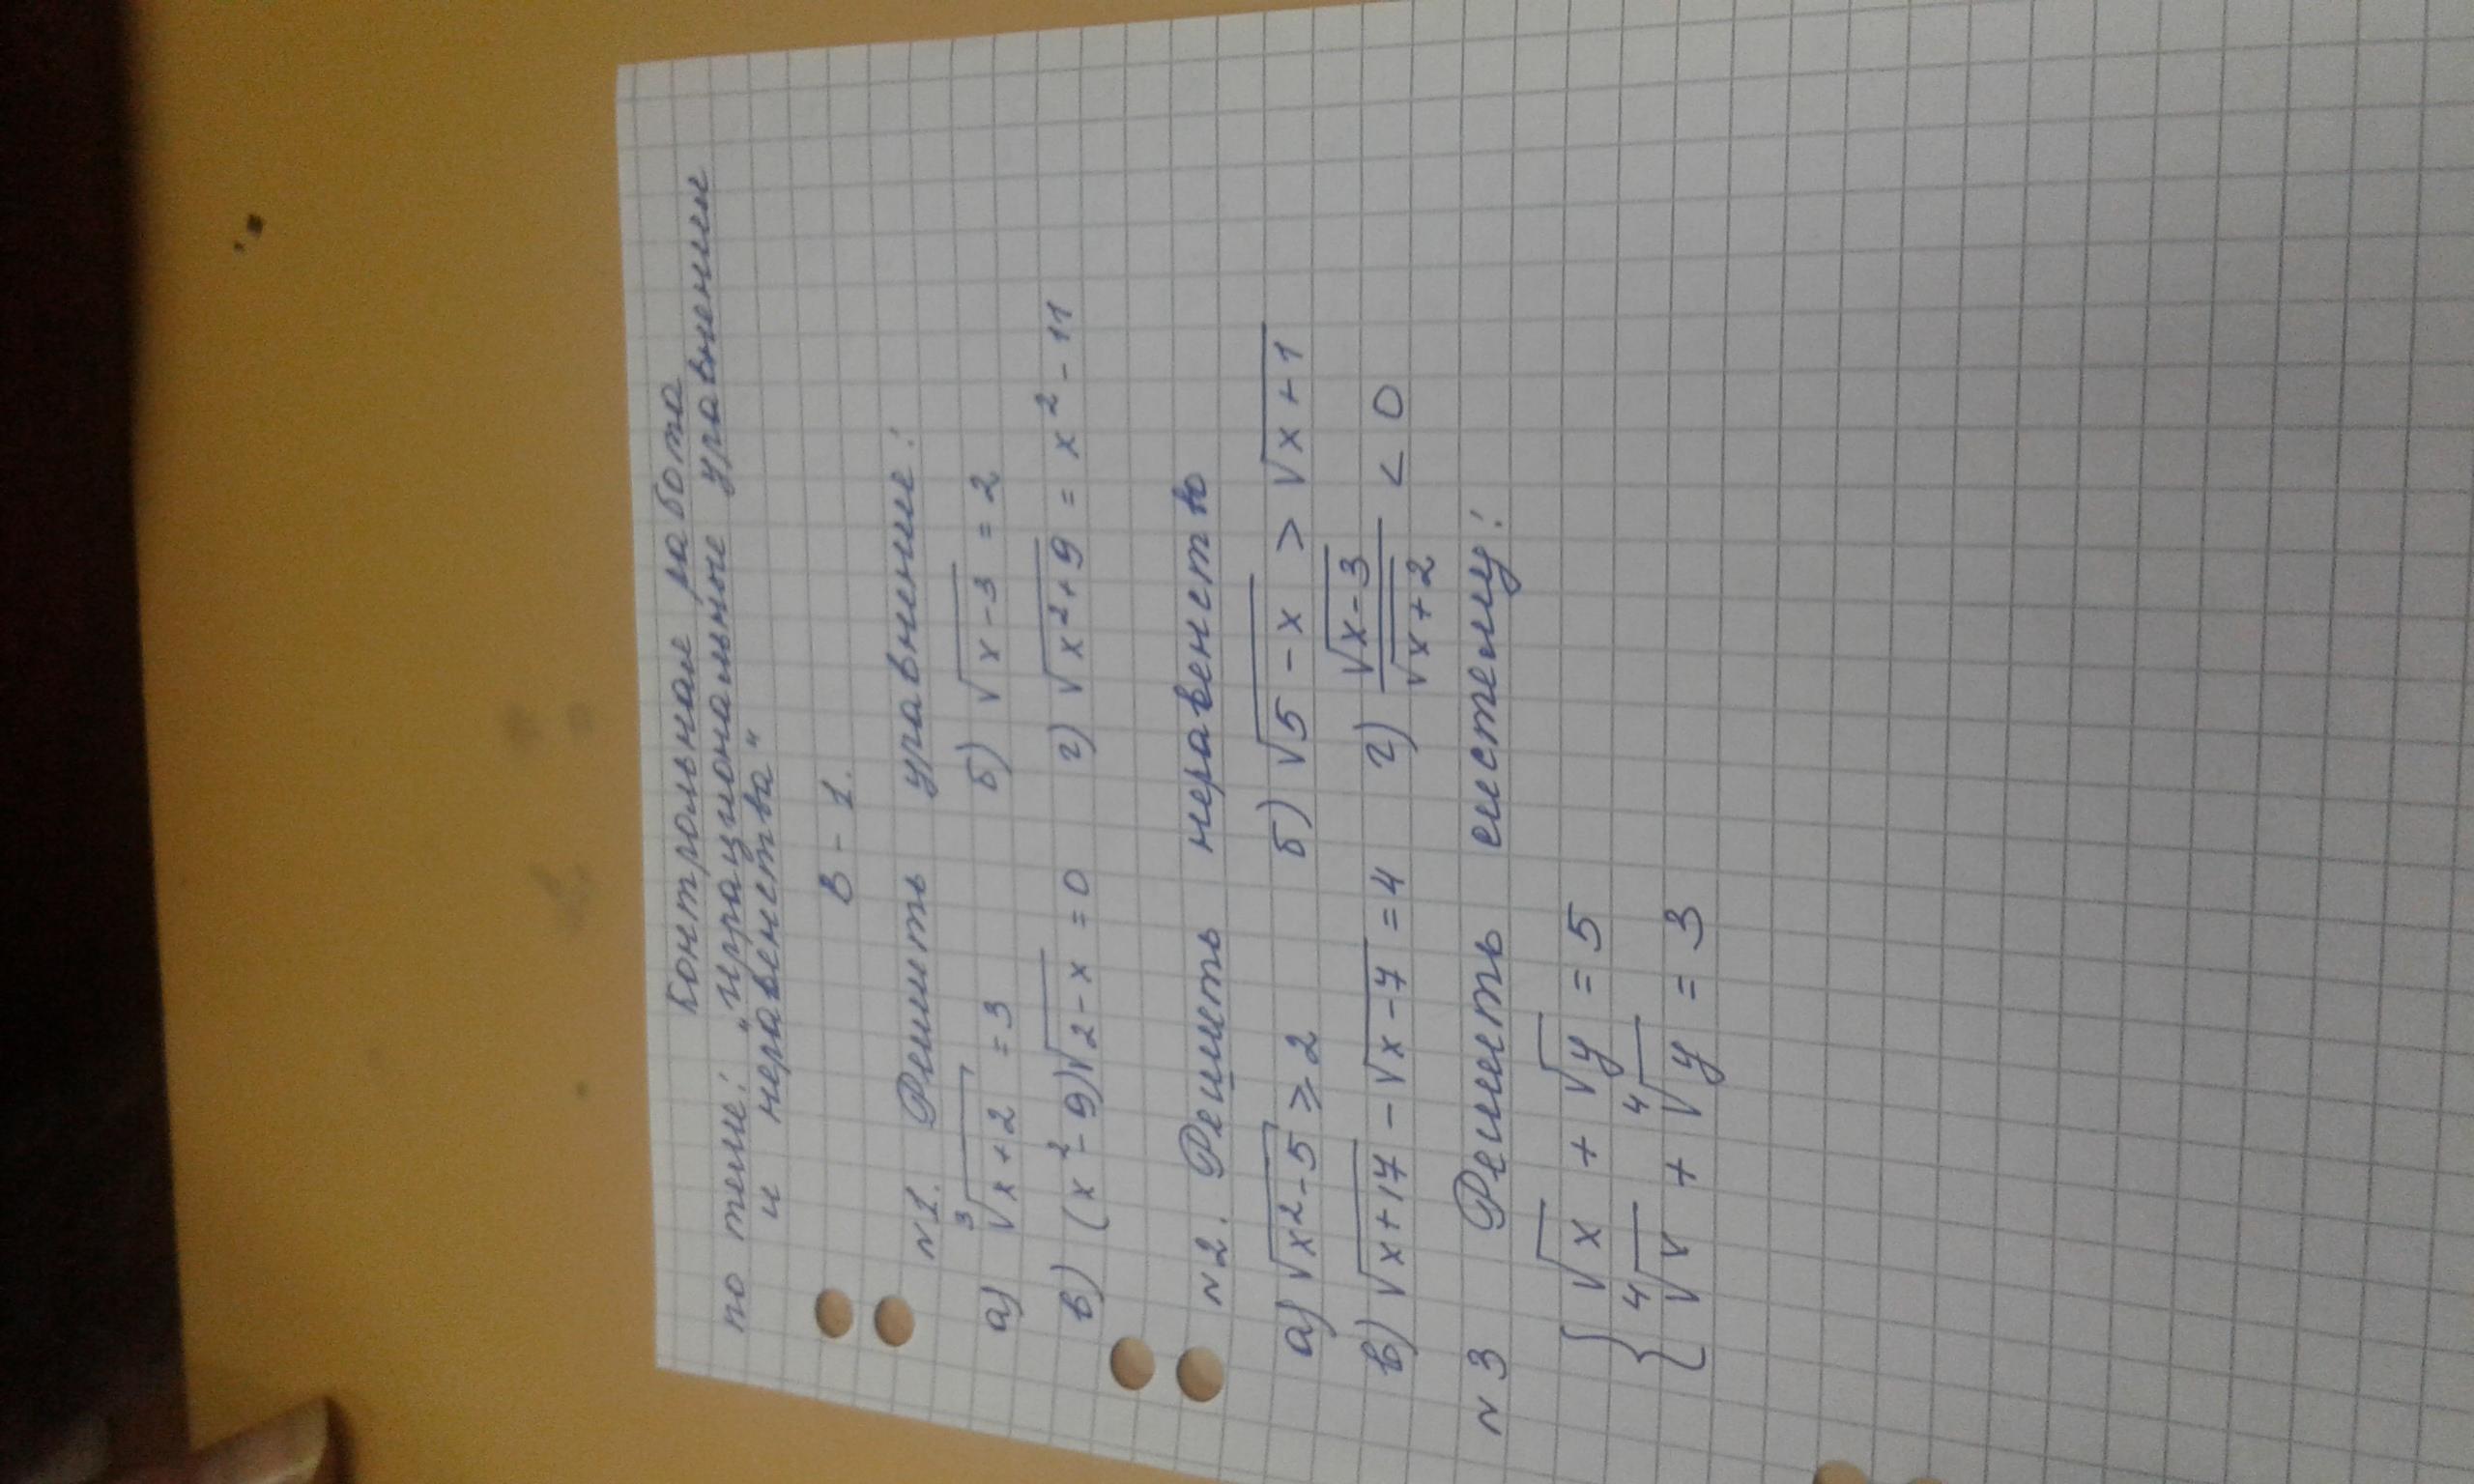 Контрольная работа
по теме: „иррациональные уравнения
и неравенства“
В - 1.
№1. Решить уравнение:
а) ∛(x+2) = 3 б) √(x-3) = 2
в) (x²-9)√(2-x) = 0 г) √(x²+9) = x² - 11
№2. Решить неравенство
а) √(x²-5) ⩾ 2 б) √(5-x) > √(x+1)
в) √(x+17) - √(x-7) = 4 г) √(x-3)/√(x+2) < 0
№3 Решить систему:
{ √x + √y = 5
∜x + ∜y = 3